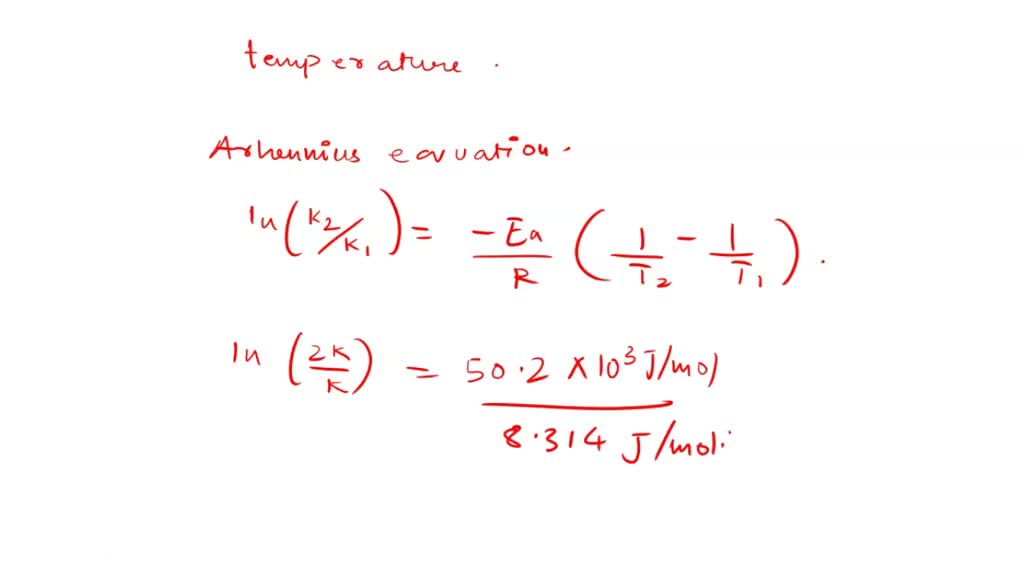 temperature .
Arhennius eavuation.
ln (K2/K1) = -Ea/R (1/T2 - 1/T1) .
ln (2K/K) = 50.2 × 10³ J/mol / 8.314 J/mol.